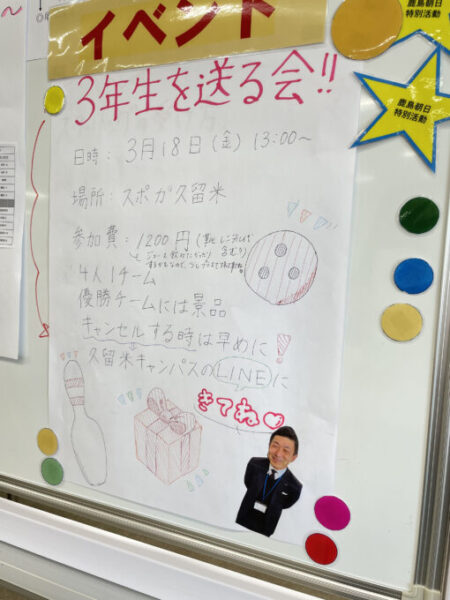 イベント
鹿島朝日
特別活動
鹿島朝日
特別活動
3年生を送る会!!
日時: 3月18日(金) 13:00〜
場所: スポガ久留米
参加費: 1200円(靴レンタル代
含む)
4人1チーム
優勝チームには景品
キャンセルする時は早めに!
久留米キャンパスのLINEに
きてね♡